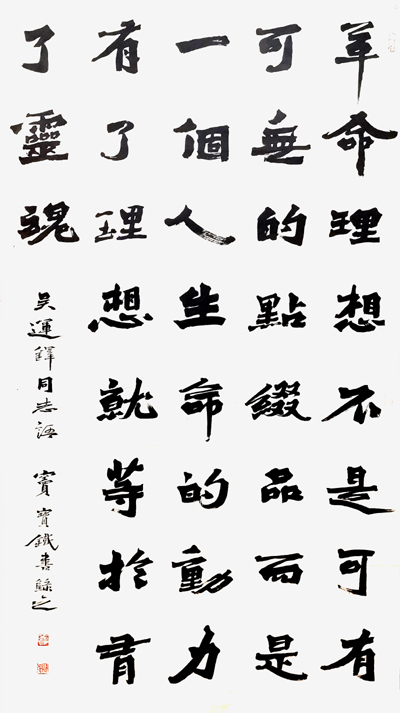 革命理想不是可有
可無的點綴品而是
一個人生命的動力
有了理想就等於有
了靈魂
吴運鐸同志語 竇寶鐵書錄之